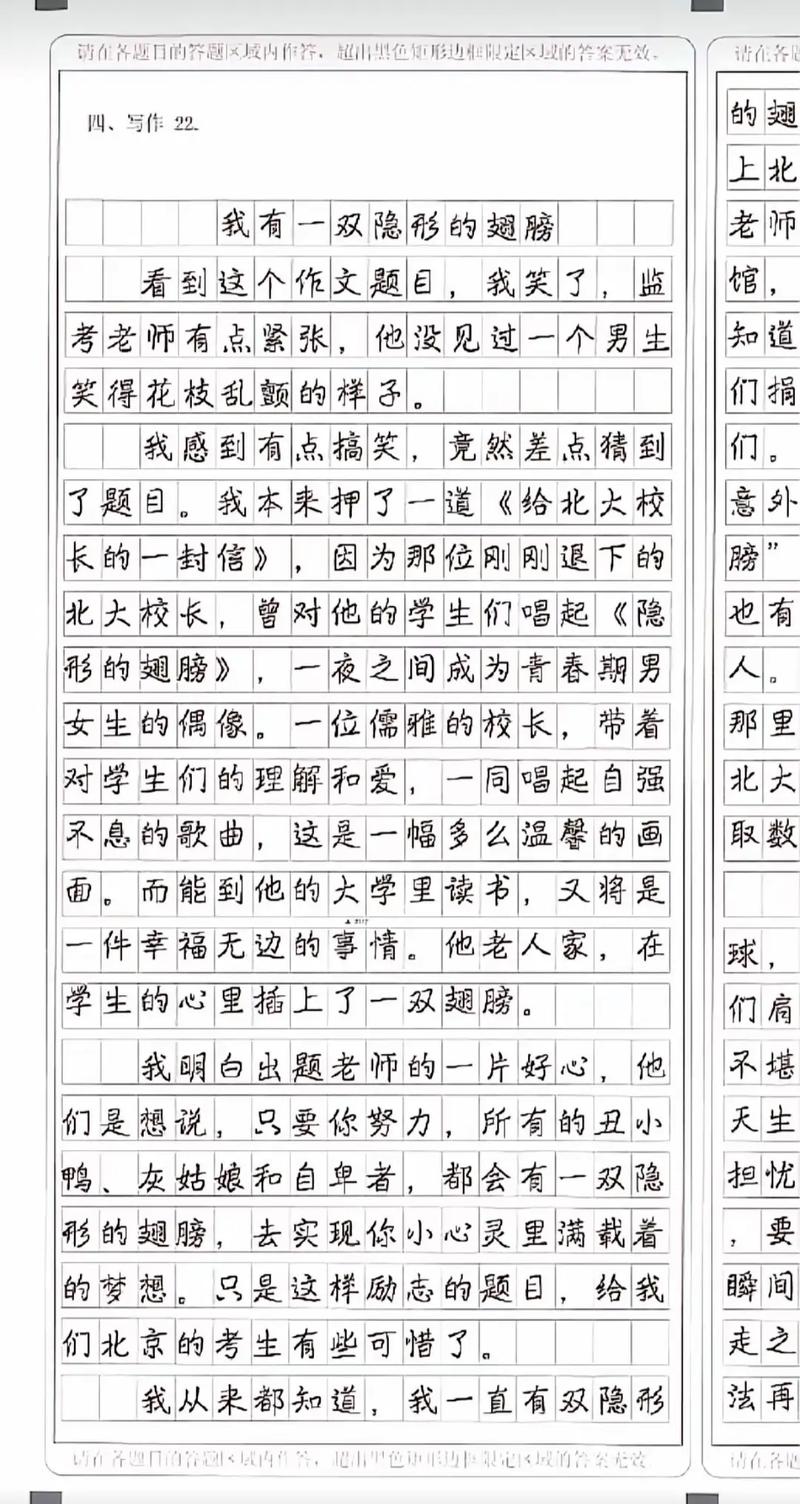 请在各题目的答题区域内作答，超出黑色矩形边框限定区域的答案无效。
四、写作 22.
我有一双隐形的翅膀
看到这个作文题目，我笑了，监
考老师有点紧张，他没见过一个男生
笑得花枝乱颤的样子。
我感到有点搞笑，竟然差点猜到
了题目。我本来押了一道《给北大校
长的一封信》，因为那位刚刚退下的
北大校长，曾对他的学生们唱起《隐
形的翅膀》，一夜之间成为青春期男
女生的偶像。一位儒雅的校长，带着
对学生们的理解和爱，一同唱起自强
不息的歌曲，这是一幅多么温馨的画
面。而能到他的大学里读书，又将是
一件幸福无边的事情。他老人家，在
学生的心里插上了一双翅膀。
我明白出题老师的一片好心，他
们是想说，只要你努力，所有的丑小
鸭、灰姑娘和自卑者，都会有一双隐
形的翅膀，去实现你小心灵里满载着
的梦想。只是这样励志的题目，给我
们北京的考生有些可惜了。
我从来都知道，我一直有双隐形
请在各题目的答题区域内作答，超出黑色矩形边框限定区域的答案无效
请在各题
的翅
上北
老师
馆，
知道
们捐
们。
意外
膀”
也有
人。
那里
北大
取数
球，
们肩
不堪
天生
担忧
，要
瞬间
走之
法再
请在各题